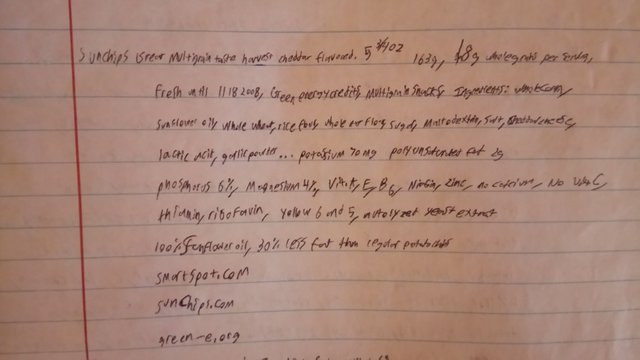 Sunchips Great Multigrain taste harvest cheddar flavored. 5 3/4 oz 163g, 18g wholegrains per serving,
Fresh until 11 18 2008, Green energy credits, Multigrain Snacks Ingredients: whole corn,
sunflower oil, whole wheat, rice flour, whole oat flour, sugar, Maltodextrin, salt, cheddar cheese,
lactic acid, garlic powder... potassium 70 mg polyunsaturated fat 2g
phosphorus 6%, Magnesium 4%, Vit. K, E, B6, Niacin, zinc, no calcium, No Vit C,
thiamin, riboflavin, yellow 6 and 5, autolyzed yeast extract
100% sunflower oil, 30% less fat than regular potato
smartspot.com
sunchips.com
green-e.org